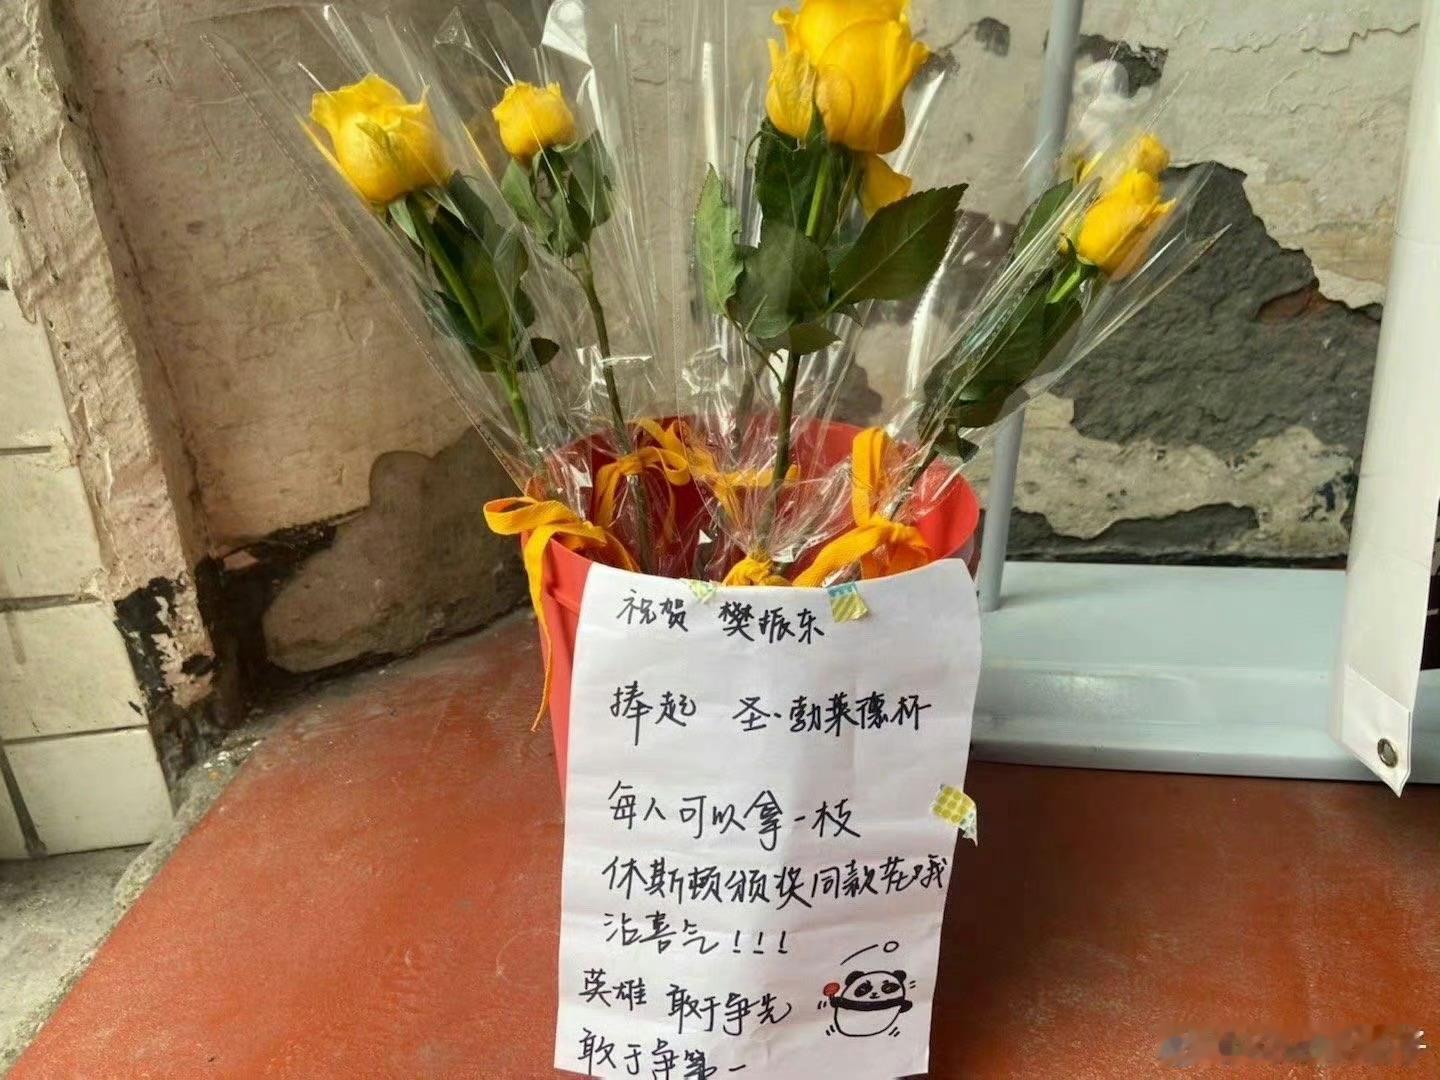 祝贺 樊振东
捧起 圣·勃莱德杯
每人可以拿一枝
休斯顿颁奖同款花哦
沾喜气!!!
英雄 敢于争先
敢于争第一